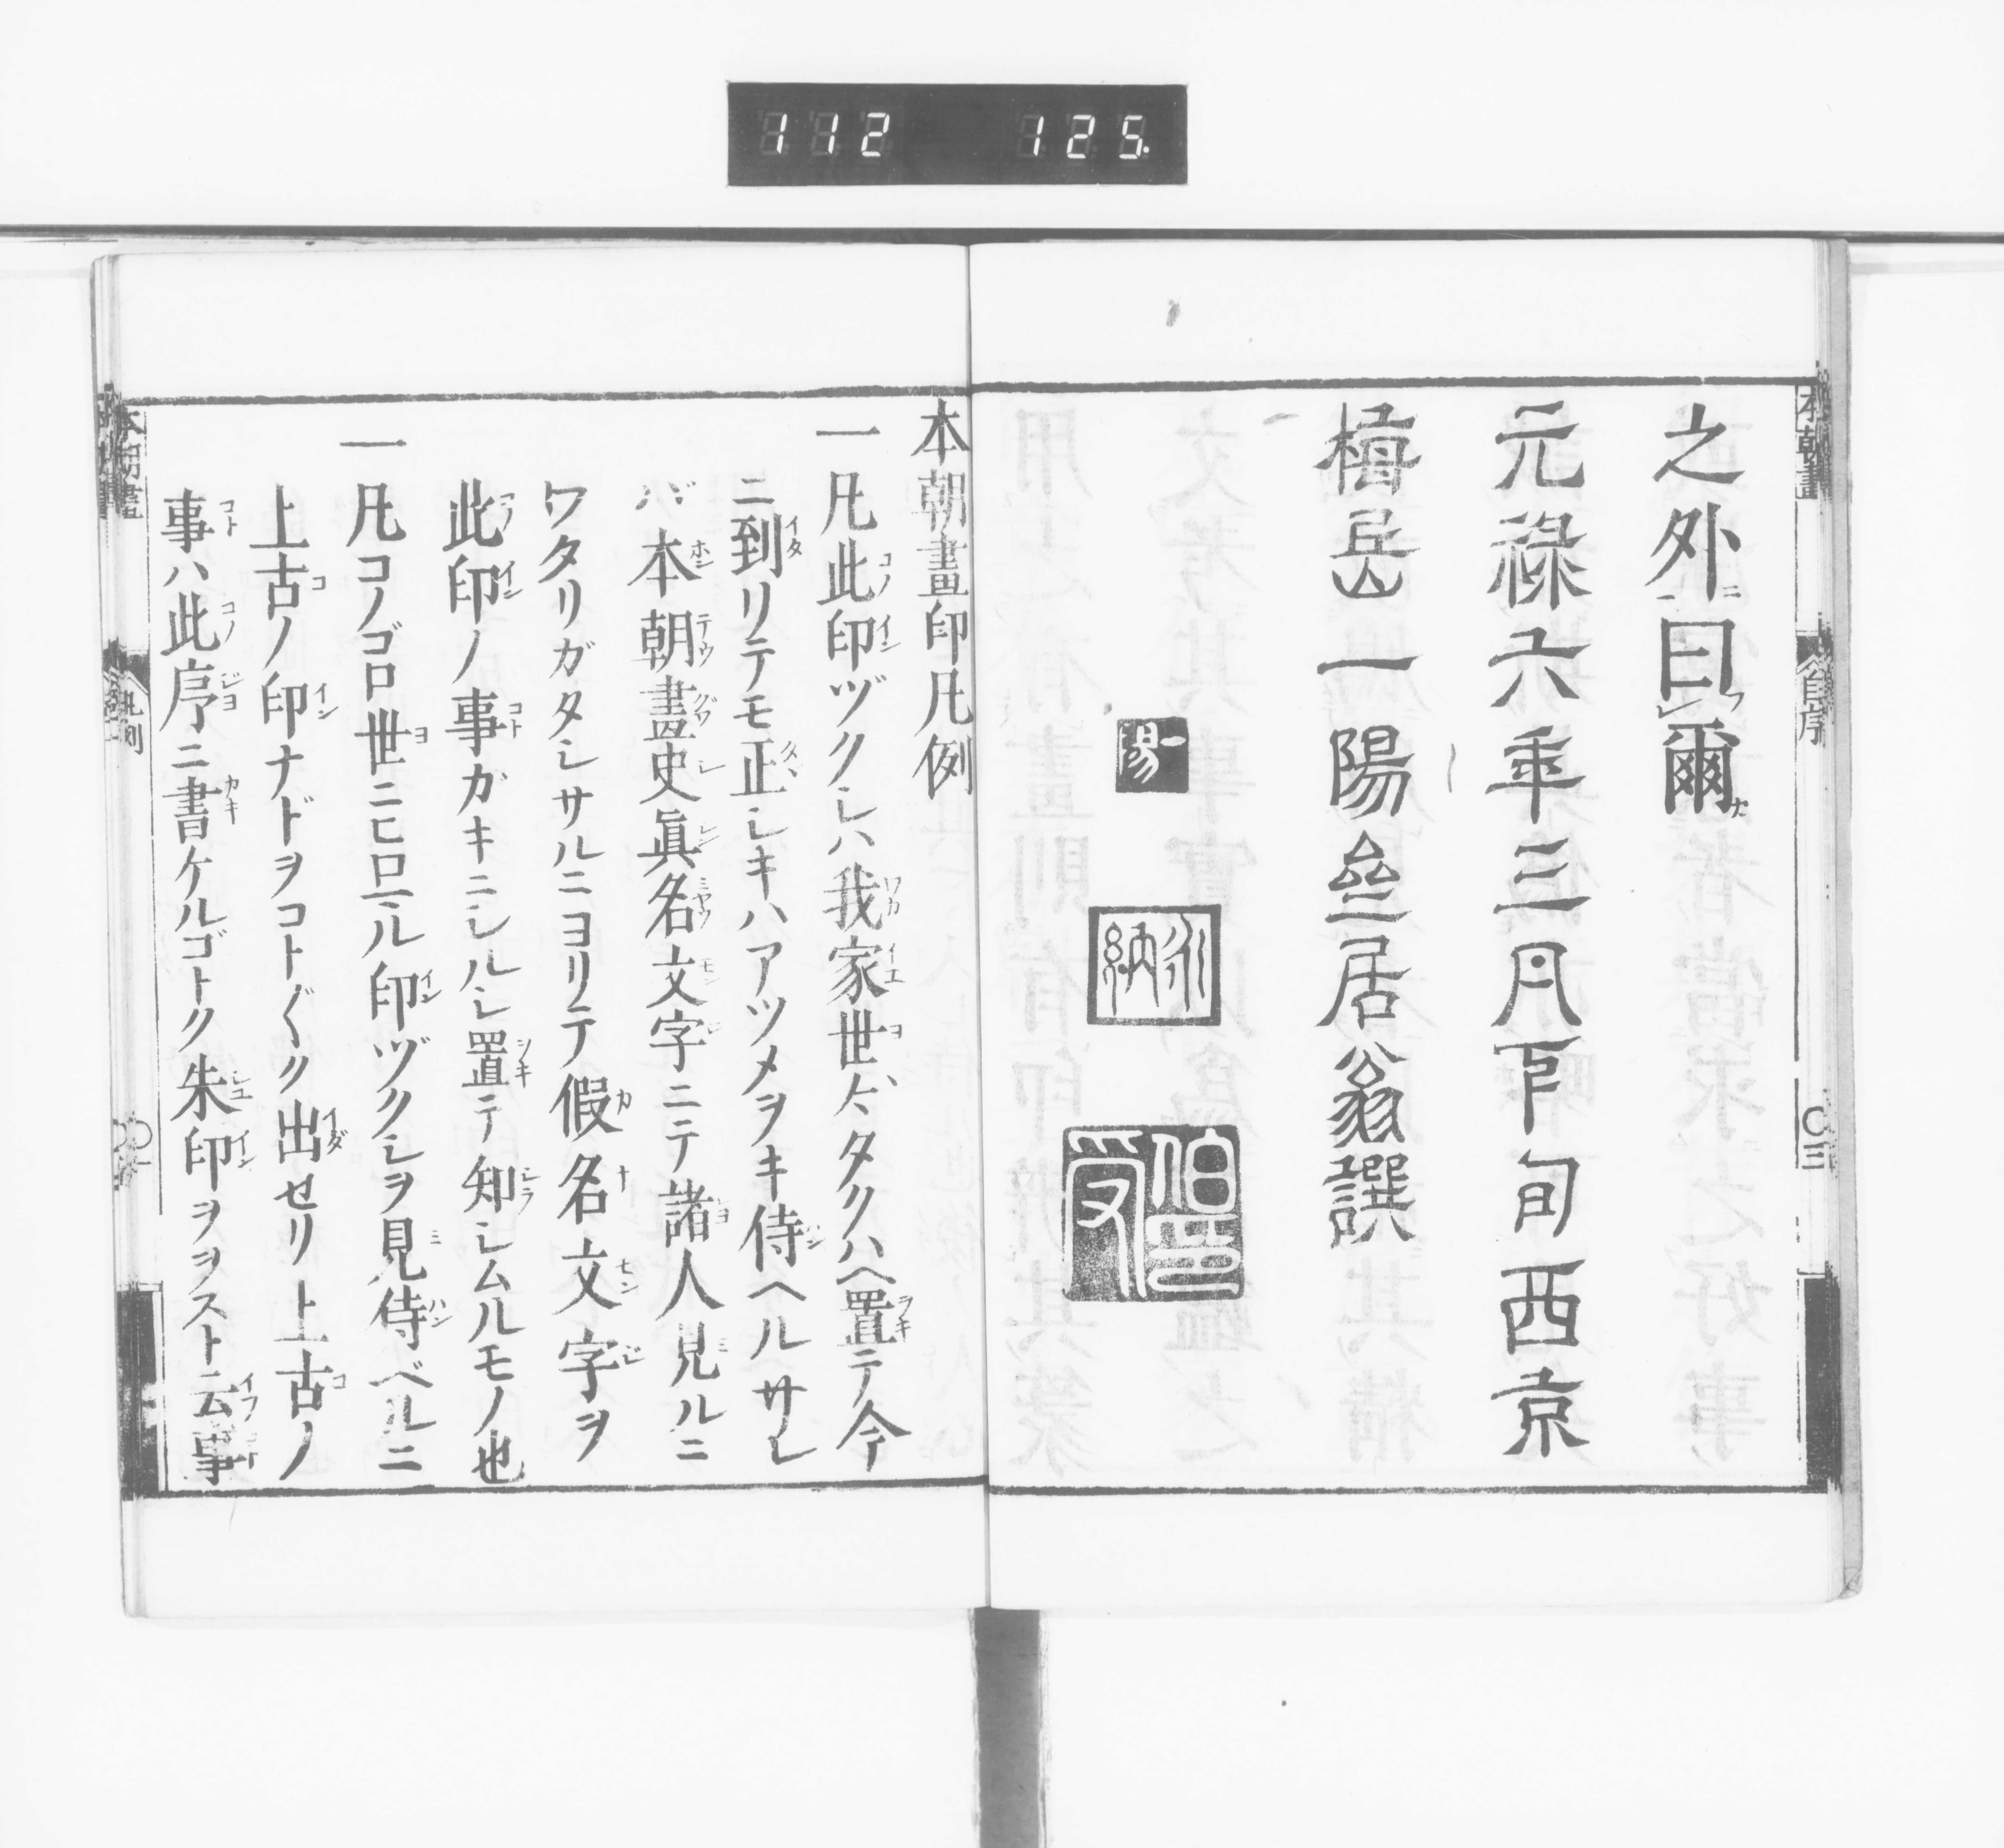 112 125
之外曰爾
元祿六年三月下旬西京
梅岳一陽齋居翁譔
一陽
永納
伯受
本朝畫印凡例
一凡此印ヅクシハ我家世々タクハヘ置テ今
ニ到リテモ正シキハアツメヲキ侍ヘルサレ
バ本朝畫史眞名文字ニテ諸人見ルニ
ワタリガタシサルニヨリテ假名文字ヲ
此印ノ事ガキニシルシ置テ知シムルモノ也
一凡コノゴロ世ニヒロマル印ヅクシヲ見侍ベルニ
上古ノ印ナドヲコト〴〵ク出セリ上古ノ
事ハ此序ニ書ケルゴトク朱印ヲヲスト云事